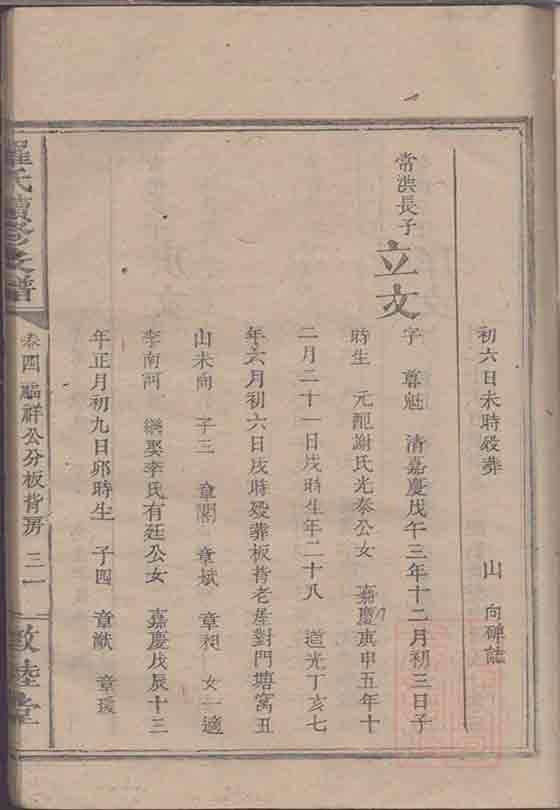 初六日未時歿葬 山 向碑誌
常洪長子 立文 字 尊魁 清嘉慶戊午三年十二月初三日子
時生 元配謝氏光泰公女 嘉慶庚申五年十
二月二十一日戌時生年二十八 道光丁亥七
年六月初六日戌時歿葬板背老屋對門塘窩丑
山未向 子三 章閣 章斌 章昶 女一適
李南河 繼娶李氏有廷公女 嘉慶戊辰十三
年正月初九日卯時生 子四 章猷 章璞
羅氏續修支譜
卷四 臨祥公分板背房 三一
敦睦堂